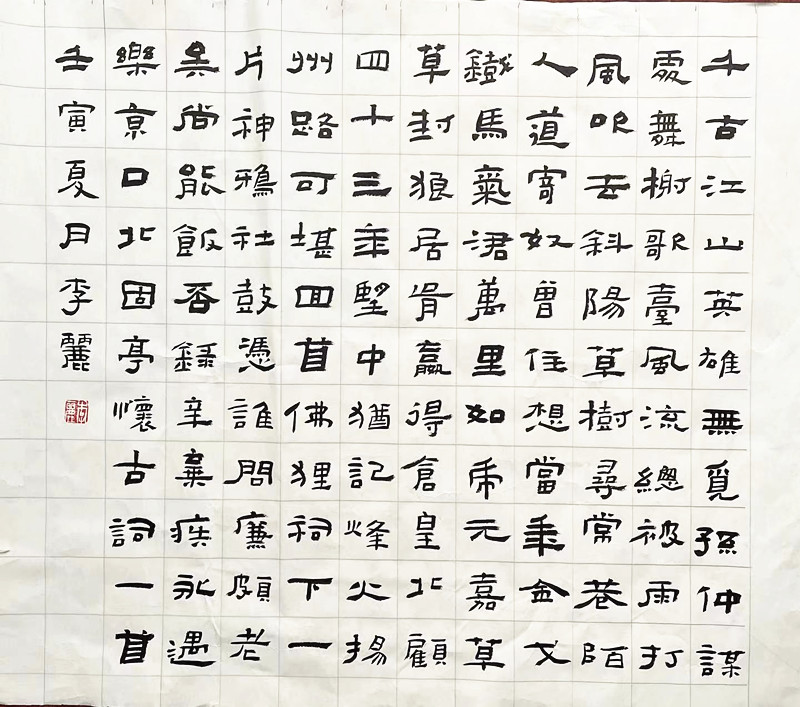 千古江山英雄無覓孫仲謀
處舞榭歌臺風流總被雨打
風吹去斜陽草樹尋常巷陌
人道寄奴曾住想當年金戈
鐵馬氣涒萬里如虎元嘉草
草封狼居胥贏得倉皇北顧
四十三年望中猶記烽火揚
州路可堪回首佛狸祠下一
片神鴉社鼓憑誰問廉頗老
矣尚能飯否錄辛棄疾永遇
樂京口北固亭懷古詞一首
壬寅夏月李麗